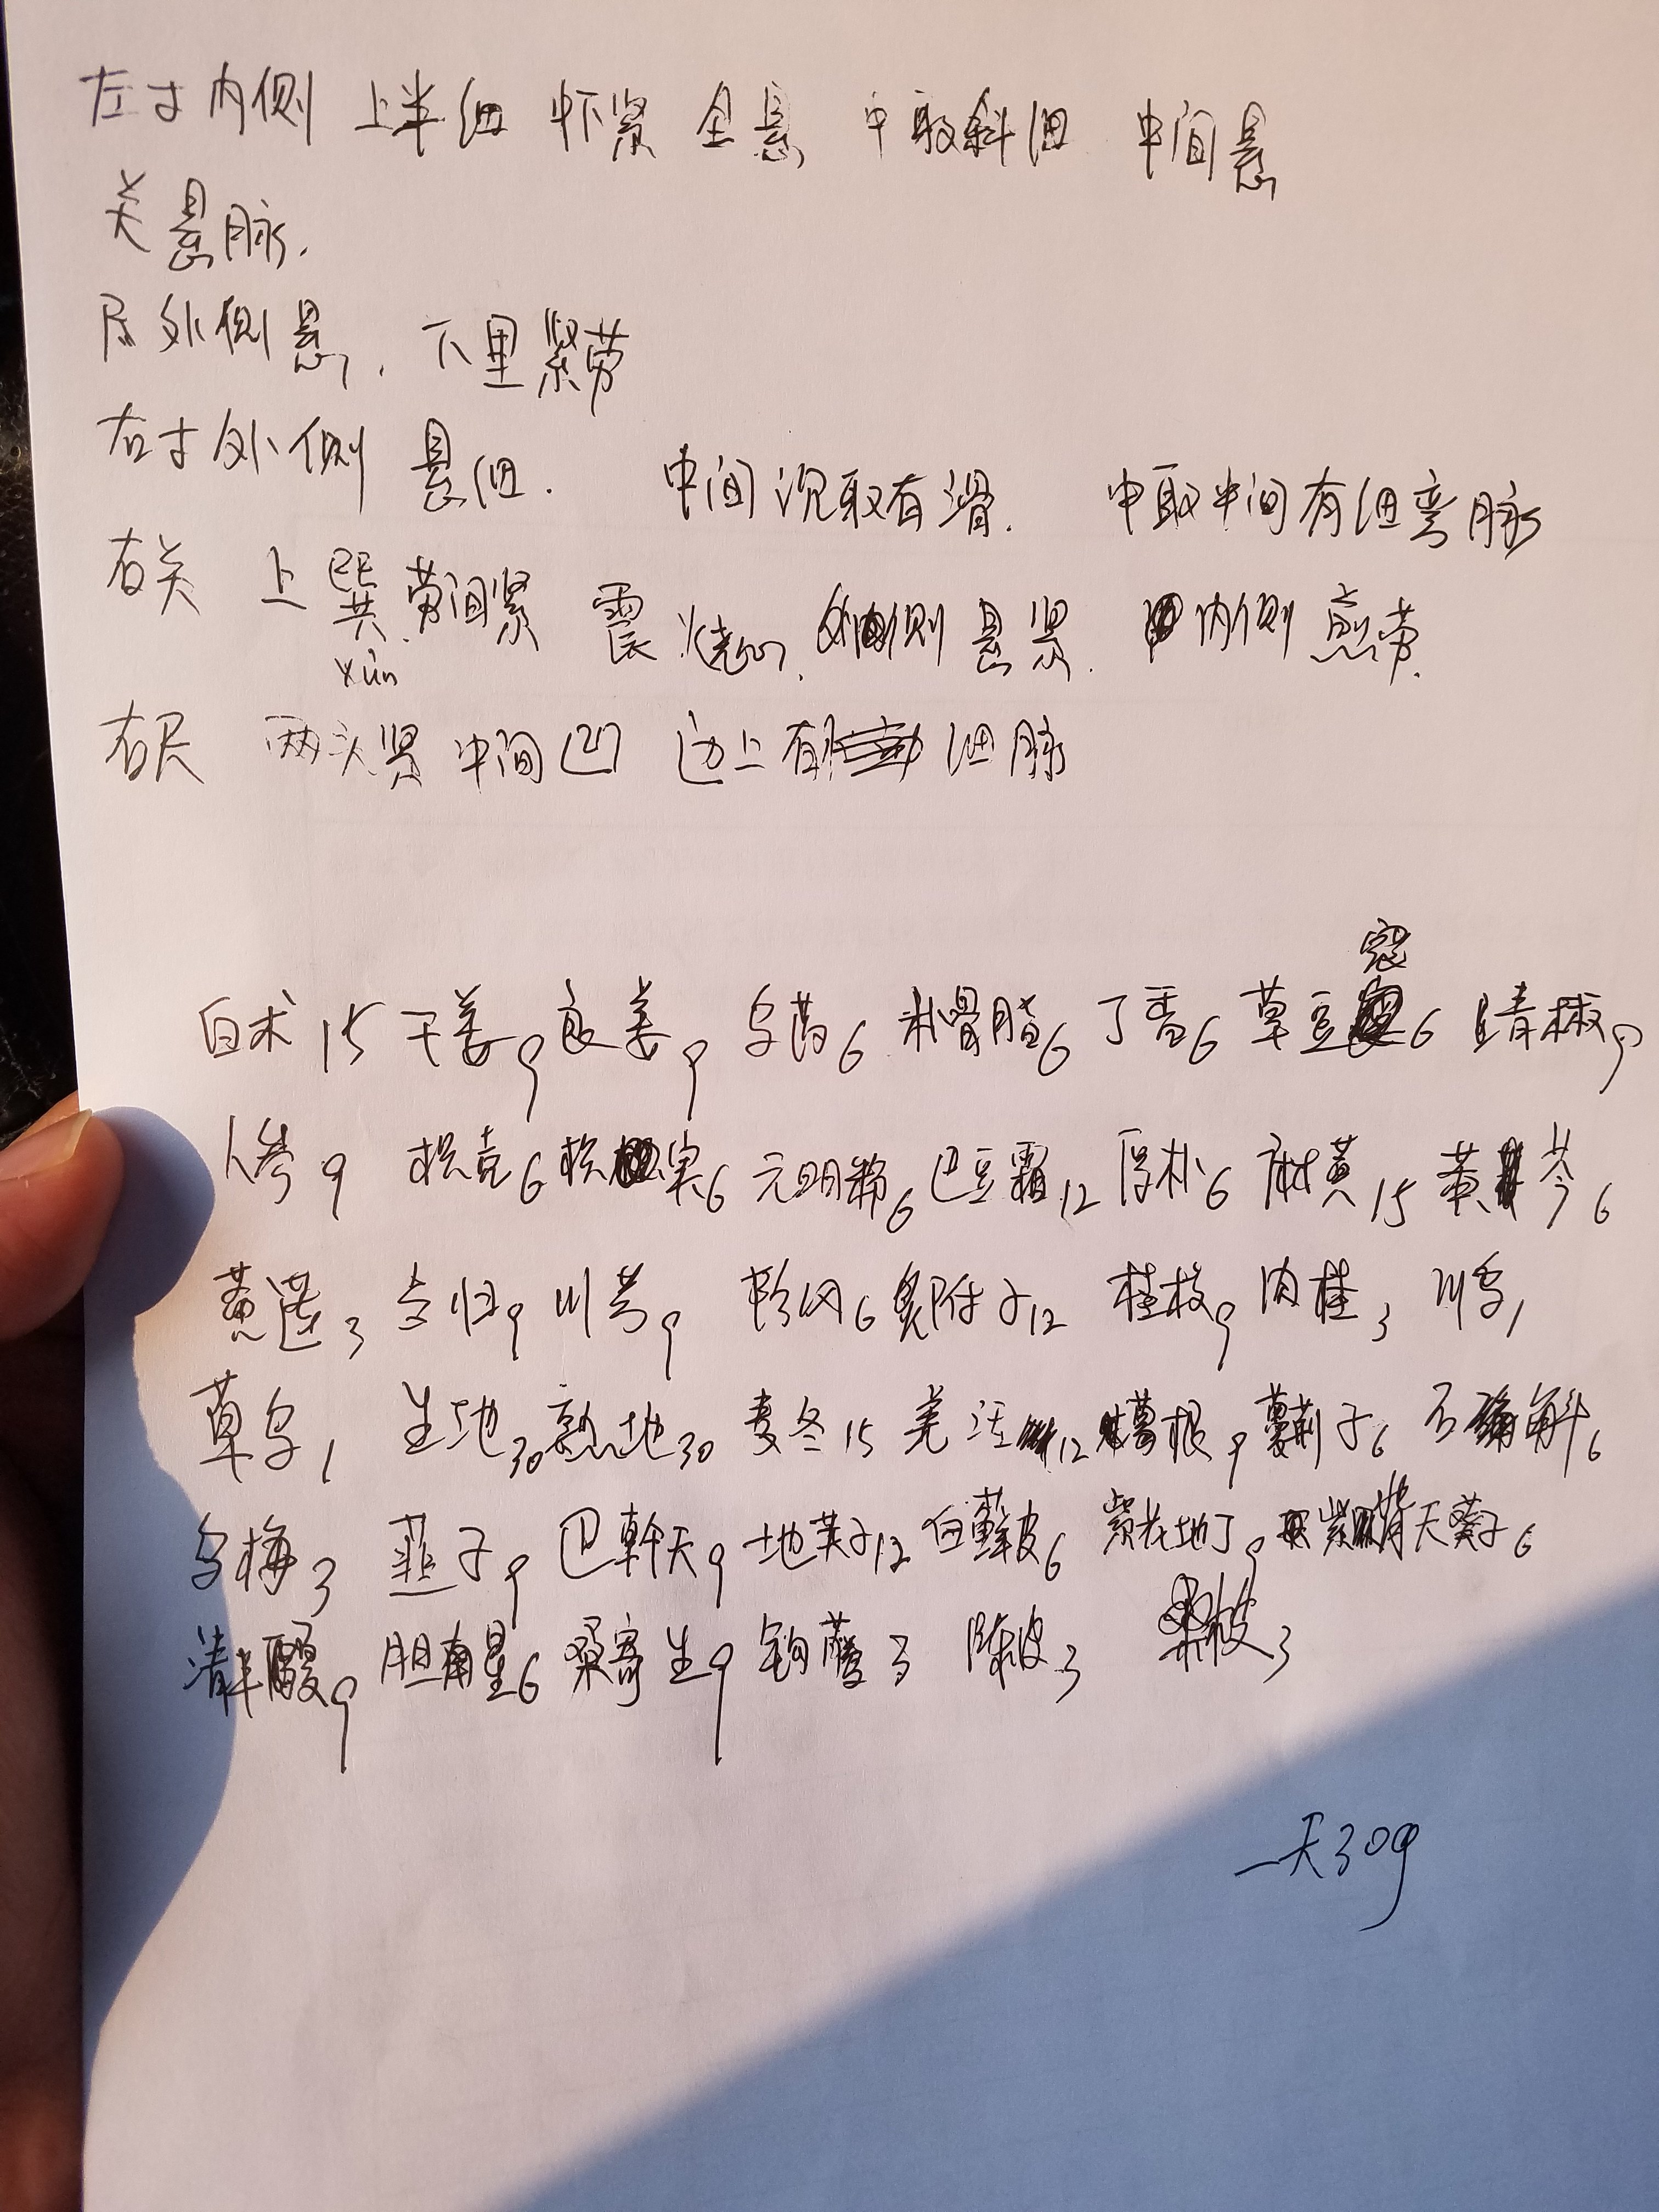 左寸内侧 上半细 下紧 全悬 中取斜细 中间悬
关悬脉.
尺外侧悬, 下里紧劳
右寸外侧 悬细. 中间沉取有滑. 中取中间有细弯脉
右关 上巽劳间紧 震 烧心, 外侧悬紧. 内侧 劳.
xùn
右尺 两头紧 中间凹 边上有细脉
寇
白术15 干姜9 良姜9 乌药6 补骨脂6 丁香6 草豆6 青椒9
人参9 枳壳6 枳实6 元明粉6 巴豆霜12 厚朴6 麻黄15 黄芩6
黄连3 当归9 川芎9 防风6 炙附子12 桂枝9 肉桂3 川乌1
草乌1 生地30 熟地30 麦冬15 羌活12 葛根9 蔓荆子6 石斛6
乌梅3 韭子9 巴戟天9 地芙子12 白藓皮6 紫花地丁9 紫背天葵子6
清半夏9 胆南星6 桑寄生9 钩藤3 陈皮3 皮3
一天30g